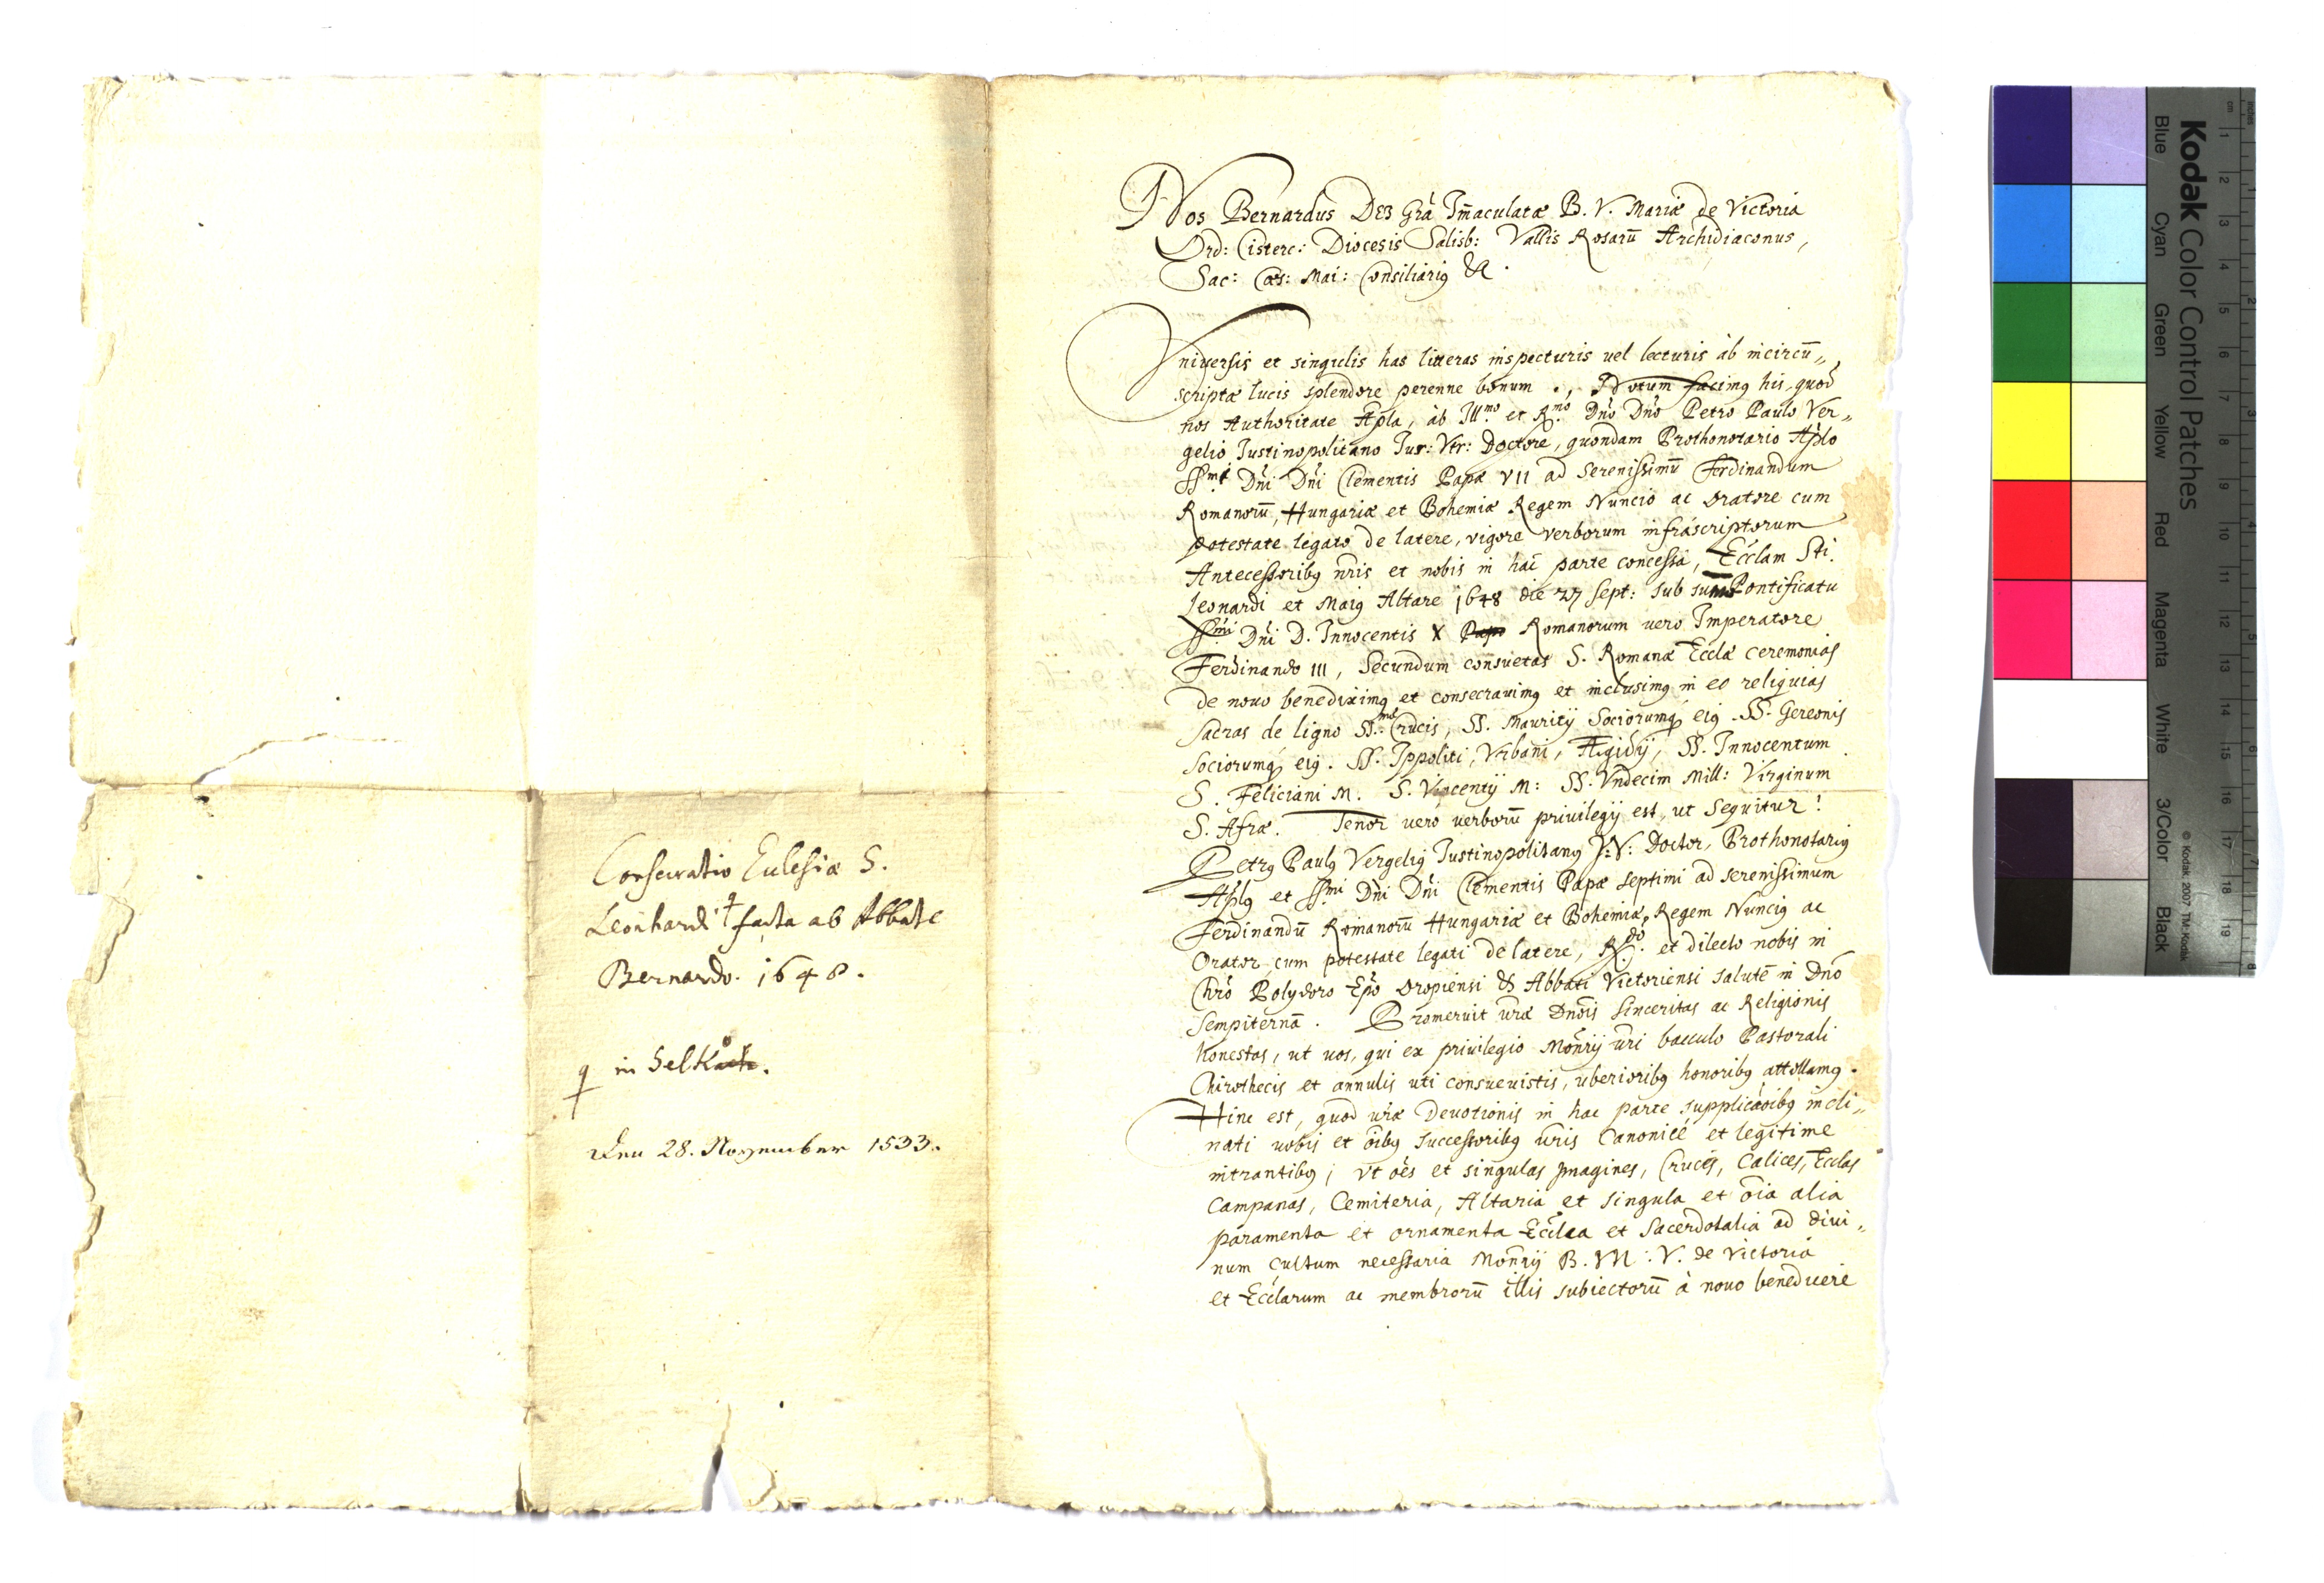 Consecratio Eulesiæ S.
Leonhardi facta ab Abbate
Bernardo. 1648.
in Selkach.
Den 28. November 1533.
Nos Bernardus Dei Grã Im̃aculatæ B. V. Mariæ de Victoria
Ord: Cisterc: Diocesis Salisb: Vallis Rosarũ Archidiaconus,
Sac: Cæs: Mai: Consiliariꝰ &c.
Vniversis et singulis has litteras inspecturis vel lecturis ab incircũ„
scriptæ lucis splendore perenne bonum. Notum facimꝰ his, quod
nos Authoritate Apla, ab Illmo. et Rmo. Dño Dño Petro Paulo Ver„
gelio Justinopolitano Jur: Vtr: Doctore, quondam Prothonotario Aplo
SSmi. Dñi Dñi Clementis Papæ VII ad Serenissimũ Ferdinandum
Romanorũ, Hungariæ et Bohemiæ Regem Nuncio ac Oratore cum
potestate legato de latere, vigore verborum infrascriptorum
Antecessoribꝰ nr̃is et nobis in hac parte concessa, Ecclam Sti.
Leonardi et Maiꝰ Altare 1648 die 27 Sept: sub Pontificatu
SSmi Dñi D. Innocentis X Papæ Romanorum vero Imperatore
Ferdinando III, Secundum consuetas S. Romanæ Ecclæ ceremonias
de novo benediximꝰ et consecravimꝰ et inclusimꝰ in eo reliquias
sacras de ligno SS.mæ Crucis, SS. Mauritij Sociorumqꝫ eiꝰ. SS. Gereonis
Sociorumqꝫ eiꝰ. SS. Ippoliti, Vrbani, Ægidij, SS. Innocentum
S. Feliciani M. S. Vincentij M: SS. Vndecim Mill: Virginum
S. Afræ. Tenor vero verborũ privilegij est, ut sequitur!
Petrꝰ Paulꝰ Vergeliꝰ Justinopolitanꝰ J:V: Doctor, Prothonotariꝰ
Aplꝰ et SSmi Dñi Dñi Clementis Papæ septimi ad serenissimum
Ferdinandũ Romanorũ Hungariæ et Bohemiæ, Regem Nunciꝰ ac
Orator, cum potestate legati de latere, Rdo. et dilecto nobis in
Chrõ Polydoro Epo Dropiensi & Abbati Victoriensi salutẽ in Dño
Sempiternã. Promeruit vr̃æ Dñois sinceritas ac Religionis
honestas, ut vos, qui ex privilegio Monrij vr̃i bacculo Pastorali
Chirothecis et annulis uti consuevistis, uberioribꝰ honoribꝰ attollamꝰ.
Hinc est, quod vr̃æ Devotionis in hac parte supplicãoibꝰ incli„
nati vobis et õibꝰ successoribꝰ vr̃is Canonicè et legitime
intrantibꝰ; Vt oẽs et singulas ymagines, Cruces, Calices, Ecclas
Campanas, Cemiteria, Altaria et singula et õia alia
paramenta et ornamenta Ecclea et Sacerdotalia ad divi„
num cultum necessaria Monrij B. M: V. de Victoria
et Ecclarum ac membrorũ illis subiectorũ à novo benedicere
Kodak Color Control Patches
© Kodak, 2007 TM: Kodak
Blue Cyan Green Yellow Red Magenta White 3/Color Black
inches 1 2 3 4 5 6 7 8
cm 1 2 3 4 5 6 7 8 9 10 11 12 13 14 15 16 17 18 19